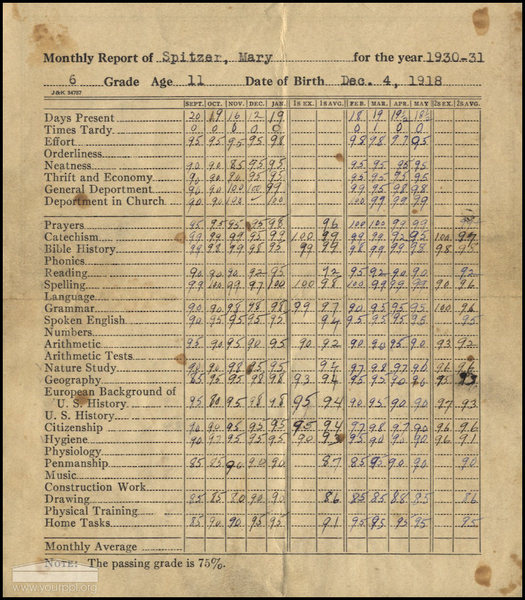 Monthly Report of Spitzer, Mary for the year 1930-31
6 Grade Age 11 Date of Birth Dec. 4, 1918
J&K 34757
SEPT. OCT. NOV. DEC. JAN. 1S EX. 1S AVG. FEB. MAR. APR. MAY 2S EX. 2S AVG.
Days Present 20 19 16 12 19 18 19 19½ 18½
Times Tardy 0 0 0 0 0 0 1 0 0
Effort 95 95 95 95 98 98 98 97 95
Orderliness
Neatness 90 90 85 95 95 95 95 95 95
Thrift and Economy 90 90 80 95 95 95 95 95 95
General Deportment 90 90 100 100 99 99 95 98 98
Deportment in Church 90 90 100 - 100 100 99 99 99
Prayers 95 95 95 95 98 96 100 100 99 99
Catechism 99 99 99 95 99 100 99 99 99 92 95 100 97
Bible History 99 98 99 98 95 99 99 98 99 99 98 98 95
Phonics
Reading 90 90 90 92 95 92 95 92 90 90 92
Spelling 99 100 99 97 100 100 98 100 99 99 99 90 96
Language
Grammar 90 90 98 98 98 99 97 90 95 95 95 100 96
Spoken English 90 95 95 95 95 94 95 95 95 95 95
Numbers
Arithmetic 95 90 95 90 95 90 92 90 90 95 90 93 92
Arithmetic Tests
Nature Study 90 90 98 95 95 94 97 98 97 96 96 96
Geography 85 95 95 98 98 93 94 95 95 90 86 95 93
European Background of
U. S. History 95 80 95 98 98 95 94 90 95 90 90 97 93
U. S. History
Citizenship 90 90 95 95 95 95 94 97 98 97 90 96 96
Hygiene 90 97 95 95 95 90 93 95 90 90 90 96 91
Physiology
Penmanship 85 85 90 90 90 87 85 95 90 90 90
Music
Construction Work
Drawing 85 85 80 90 90 86 85 85 88 85 86
Physical Training
Home Tasks 85 90 90 95 95 91 95 95 95 95 95
Monthly Average
NOTE: The passing grade is 75%.
www.yourppl.org